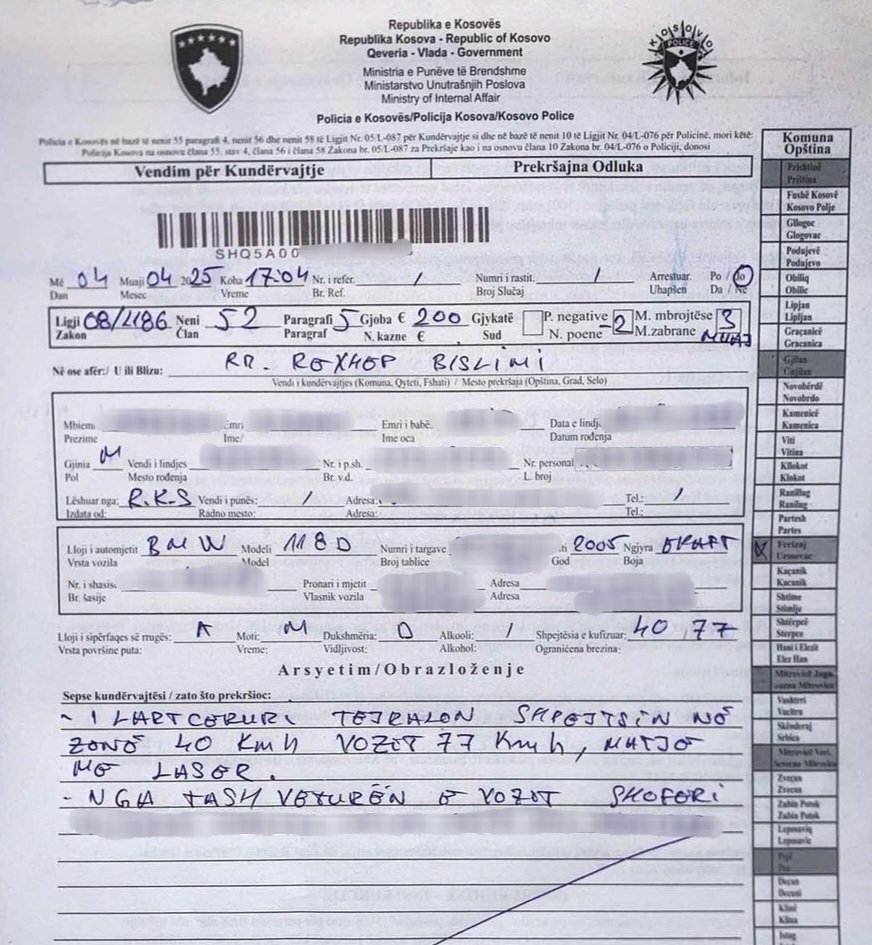 Republika e Kosovës
Republika Kosova - Republic of Kosovo
Qeveria - Vlada - Government
Ministria e Punëve të Brendshme
Ministarstvo Unutrašnjih Poslova
Ministry of Internal Affair
KOSOVO
POLICE
Policia e Kosovës/Policija Kosova/Kosovo Police
Policia e Kosovës në bazë të nenit 55 paragrafi 4, nenit 56 dhe nenit 58 të Ligjit Nr. 05/L-087 për Kundërvajtje si dhe në bazë të nenit 10 të Ligjit Nr. 04/L-076 për Policinë, mori këtë:
Policija Kosova na osnovu člana 55, stav 4, člana 56 i člana 58 Zakona br. 05/L-087 za Prekršaje kao i na osnovu člana 10 Zakona br. 04/L-076 o Policiji, donosi
Vendim për Kundërvajtje Prekršajna Odluka
SHQ5A00
Më 04 Muaji 04 2025 Koha 17:04 Nr. i refer. / Numri i rastit. / Arrestuar. Po / Jo
Dan Mesec Vreme Br. Ref. Broj Slučaj Uhapšen Da / Ne
Ligji 08/L186 Neni 52 Paragrafi 5 Gjoba € 200 Gjykatë P. negative -2 M. mbrojtëse 3
Zakon Član Paragraf N. kazne € Sud N. poene M.zabrane MUAJ
Në ose afër:/ U ili Blizu: RR. REXHEP BISLIMI
Vendi i kundërvajtjes (Komuna, Qyteti, Fshati) / Mesto prekršaja (Opština, Grad, Selo)
Mbiem Emri Emri i babë. Data e lindj
Prezime Ime/ Ime oca Datum rođenja
Gjinia M Vendi i lindjes Nr. i p.sh. Nr. personal
Pol Mesto rođenja Br. v.d. L. broj
Lëshuar nga: R.K.S Vendi i punës: / Adresa: Tel.: /
Izdata od: Radno mesto: Adresa: Tel.:
Lloji i automjetit BMW Modeli 118D Numri i targave ti 2005 Ngjyra
Vrsta vozila Model Broj tablice God Boja
Nr. i shasis. Pronari i mjetit Adresa
Br. šasije Vlasnik vozila Adresa
Lloji i sipërfaqes së rrugës: A Moti: M Dukshmëria: D Alkooli: / Shpejtësia e kufizuar: 40, 77
Vrsta površine puta: Vreme: Vidljivost: Alkohol: Ograničena brezina:
Arsyetim/Obrazloženje
Sepse kundërvajtësi / zato što prekršioc:
- I LARTCEKURI TEJKALON SHPEJTSIN NË
ZONË 40 Kmh VOZIT 77 Kmh, MATJE
ME LASER.
- NGA TASH VETURËN E VOZIT SHOFERI
Komuna
Opština
Prishtinë
Priština
Fushë Kosovë
Kosovo Polje
Gllogoc
Glogovac
Podujevë
Podujevo
Obiliq
Obilic
Lipjan
Lipljan
Graçanicë
Gracanica
Gjilan
Gnjilan
Novobërdë
Novobrdo
Kamenicë
Kamenica
Viti
Vitina
Kllokot
Klokot
Ranillug
Ranilug
Partesh
Partes
X Ferizaj
Urosevac
Kaçanik
Kacanik
Shtime
Stimlje
Shtërpcë
Sterpce
Hani i Elezit
Elez Han
Mitrovicë Jugu
Vushtrri
Vucitrn
Skënderaj
Srbica
Mitrovicë Veri.
Severna Mitrovica
Zveçan
Zvecan
Zubin Potok
Zubin Potok
Leposaviq
Leposavic
Pejë
Pec
Deçan
Decani
Klinë
Klina
Istog